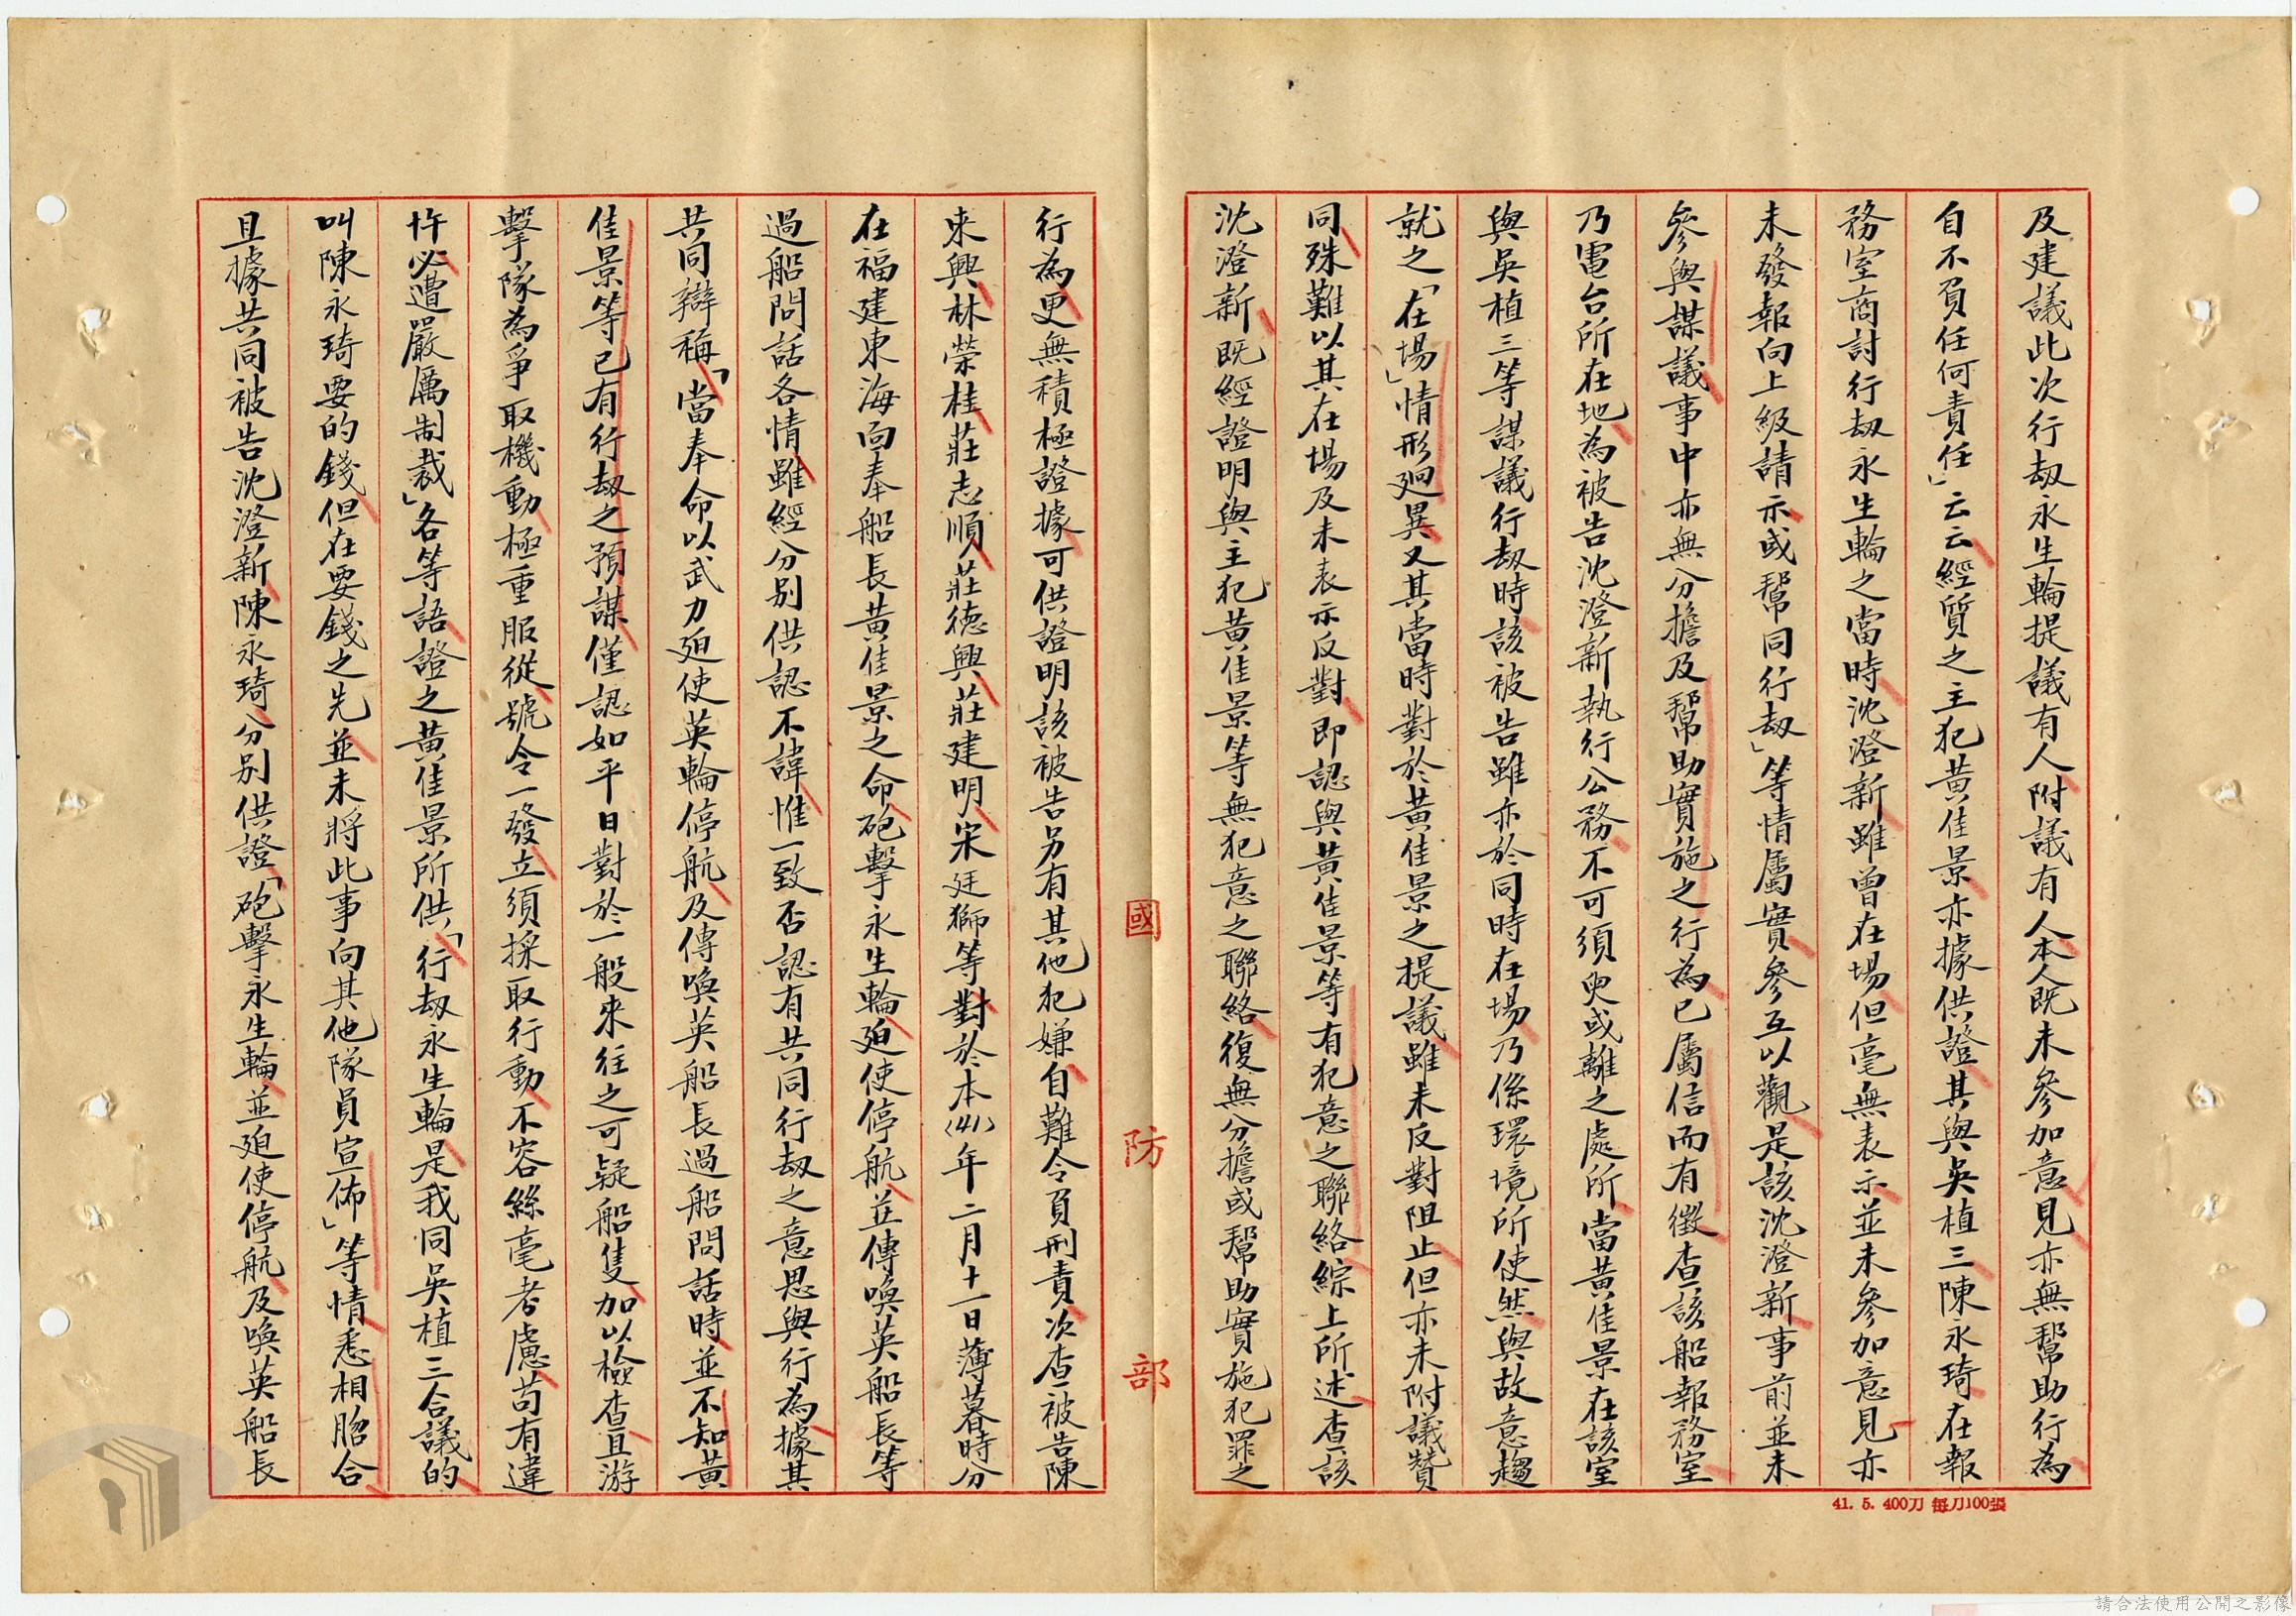 及建議此次行劫永生輪提議有人附議有人本人既未參加意見亦無幫助行為
自不負任何責任」云云經質之主犯黃佳景亦據供證其與吳植三陳永琦在報
務室商討行劫永生輪之當時沈澄新雖曾在場但毫無表示並未參加意見亦
未發報向上級請示或幫同行劫」等情屬實參互以觀是該沈澄新事前並未
參與謀議事中亦無分擔及幫助實施之行為已屬信而有徵查該船報務室
乃電台所在地為被告沈澄新執行公務不可須臾或離之處所當黃佳景在該室
與吳植三等謀議行劫時該被告雖亦於同時在場乃係環境所使然與故意趨
就之「在場」情形迥異又其當時對於黃佳景之提議雖未反對阻止但亦未附議贊
同殊難以其在場及未表示反對即認與黃佳景等有犯意之聯絡綜上所述查該
沈澄新既經證明與主犯黃佳景等無犯意之聯絡復無分擔或幫助實施犯罪之
行為更無積極證據可供證明該被告另有其他犯嫌自難令負刑責次查被告陳
來興林榮桂莊志順莊德興莊建明宋廷獅等對於本(41)年二月十一日薄暮時分
在福建東海向奉船長黃佳景之命砲擊永生輪迫使停航並傳喚英船長等
過船問話各情雖經分別供認不諱惟一致否認有共同行劫之意思與行為據其
共同辯稱「當奉命以武力迫使英輪停航及傳喚英船長過船問話時並不知黃
佳景等已有行劫之預謀僅認如平日對於一般來往之可疑船隻加以檢查且游
擊隊為爭取機動極重服從號令一發立須採取行動不容絲毫考慮苟有違
忤必遭嚴厲制裁」各等語證之黃佳景所供「行劫永生輪是我同吳植三合議的
叫陳永琦要的錢但在要錢之先並未將此事向其他隊員宣佈」等情悉相脗合
且據共同被告沈澄新陳永琦分別供證「砲擊永生輪並迫使停航及喚英船長
國防部
41. 5. 400刀 每刀100張
請合法使用公開之影像